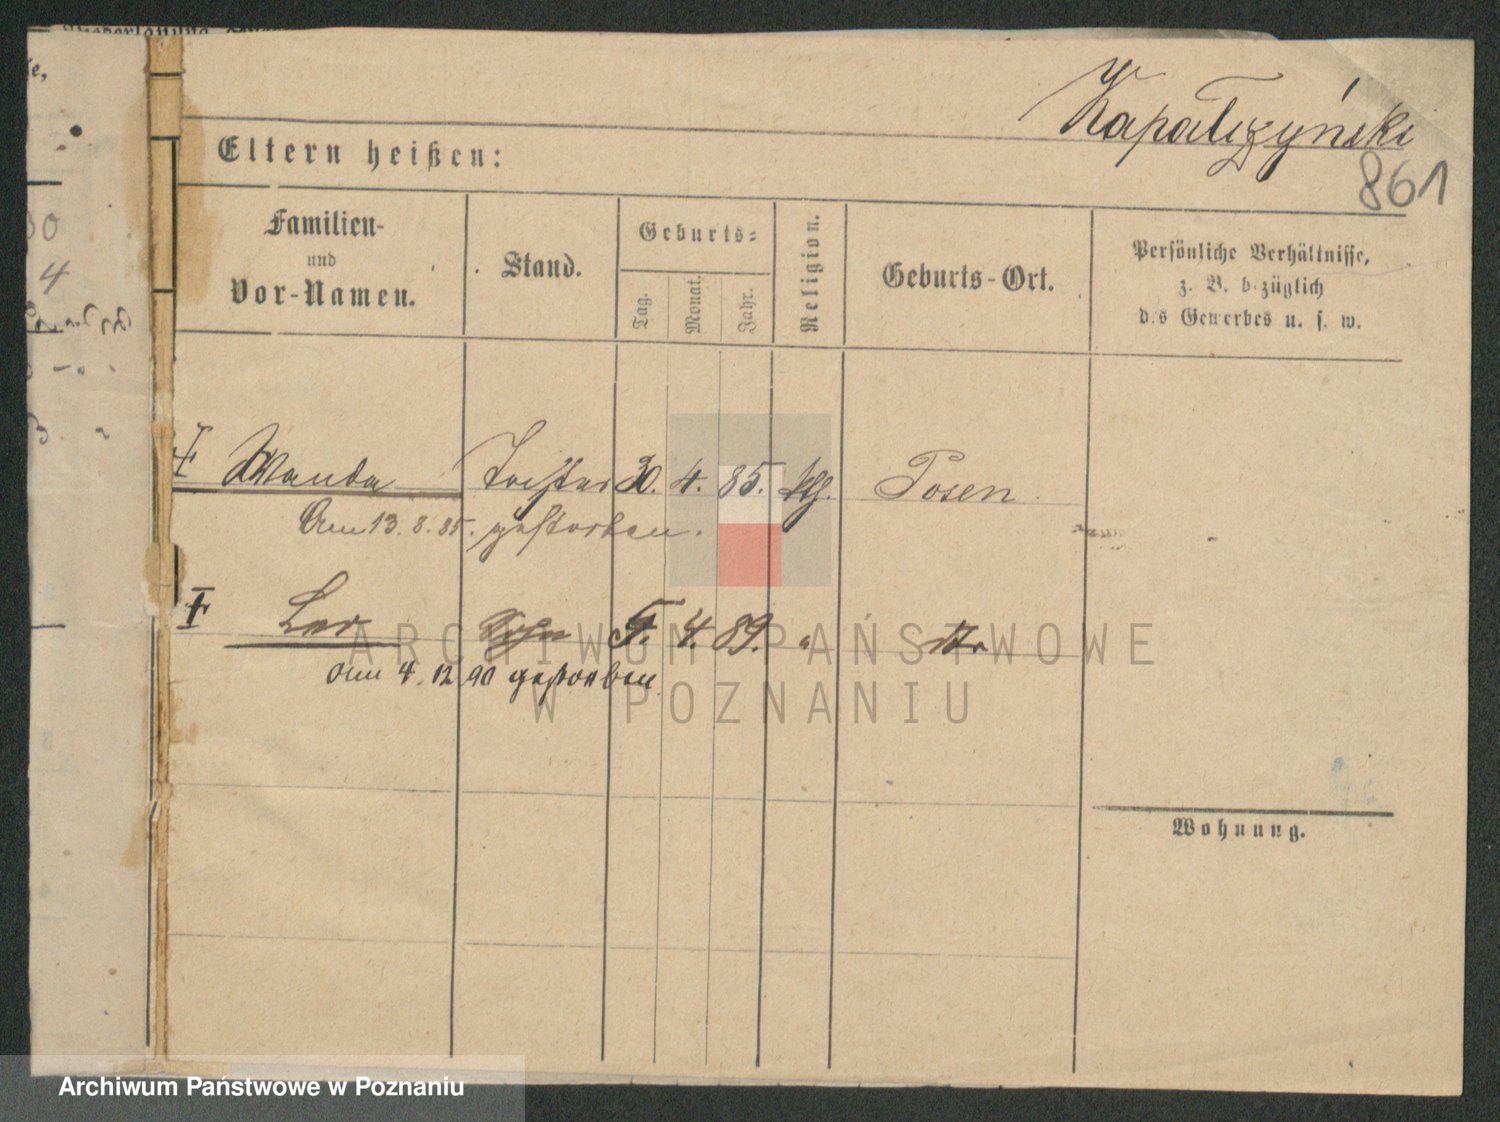 Kapałczyński
861
Eltern heißen:
Familien-
und
Vor-Namen.
Stand.
Geburts-
Tag.
Monat.
Jahr.
Religion.
Geburts-Ort.
Persönliche Verhältnisse,
z. B. bezüglich
des Gewerbes u. s. w.
30
4
Wanda Tochter 30. 4. 85. kth. Posen
Am 13. 8. 85. gestorben.
Leo Sohn 5. 4. 89. " dto
Am 4. 12 90 gestorben
Wohnung.
ARCHIWUM PAŃSTWOWE
W POZNANIU
Archiwum Państwowe w Poznaniu